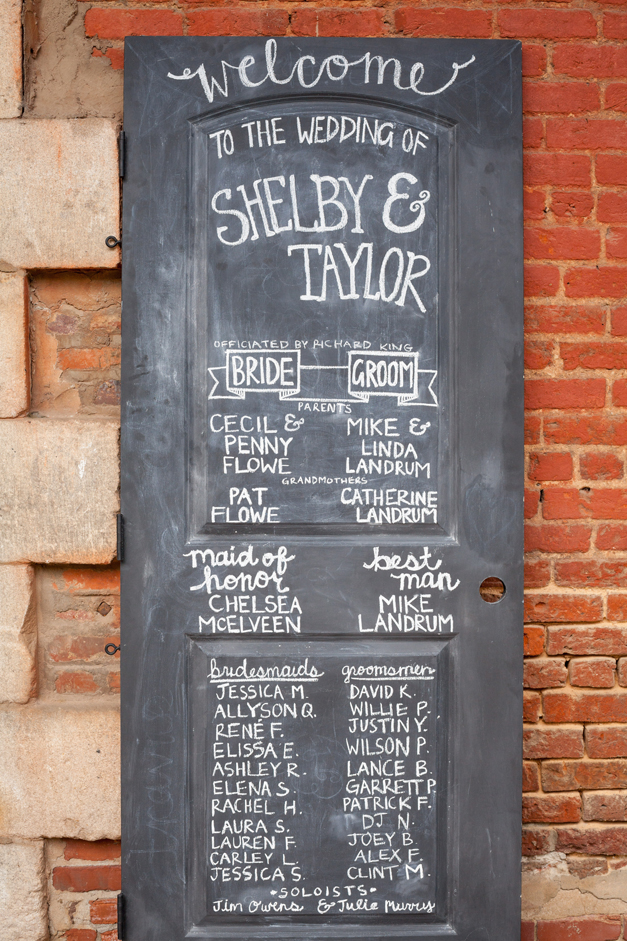 welcome
TO THE WEDDING OF
SHELBY &
TAYLOR
OFFICIATED BY RICHARD KING
BRIDE GROOM
PARENTS
CECIL & MIKE &
PENNY LINDA
FLOWE LANDRUM
GRANDMOTHERS
PAT CATHERINE
FLOWE LANDRUM
maid of best
honor man
CHELSEA MIKE
MCELVEEN LANDRUM
bridesmaids groomsmen
JESSICA M. DAVID K.
ALLYSON Q. WILLIE P.
RENÉ F. JUSTIN Y.
ELISSA E. WILSON P.
ASHLEY R. LANCE B.
ELENA S. GARRETT P.
RACHEL H. PATRICK F.
LAURA S. DJ N.
LAUREN F. JOEY B.
CARLEY L. ALEX F.
JESSICA S. CLINT M.
•SOLOISTS•
Jim Owens & Julie Murvy